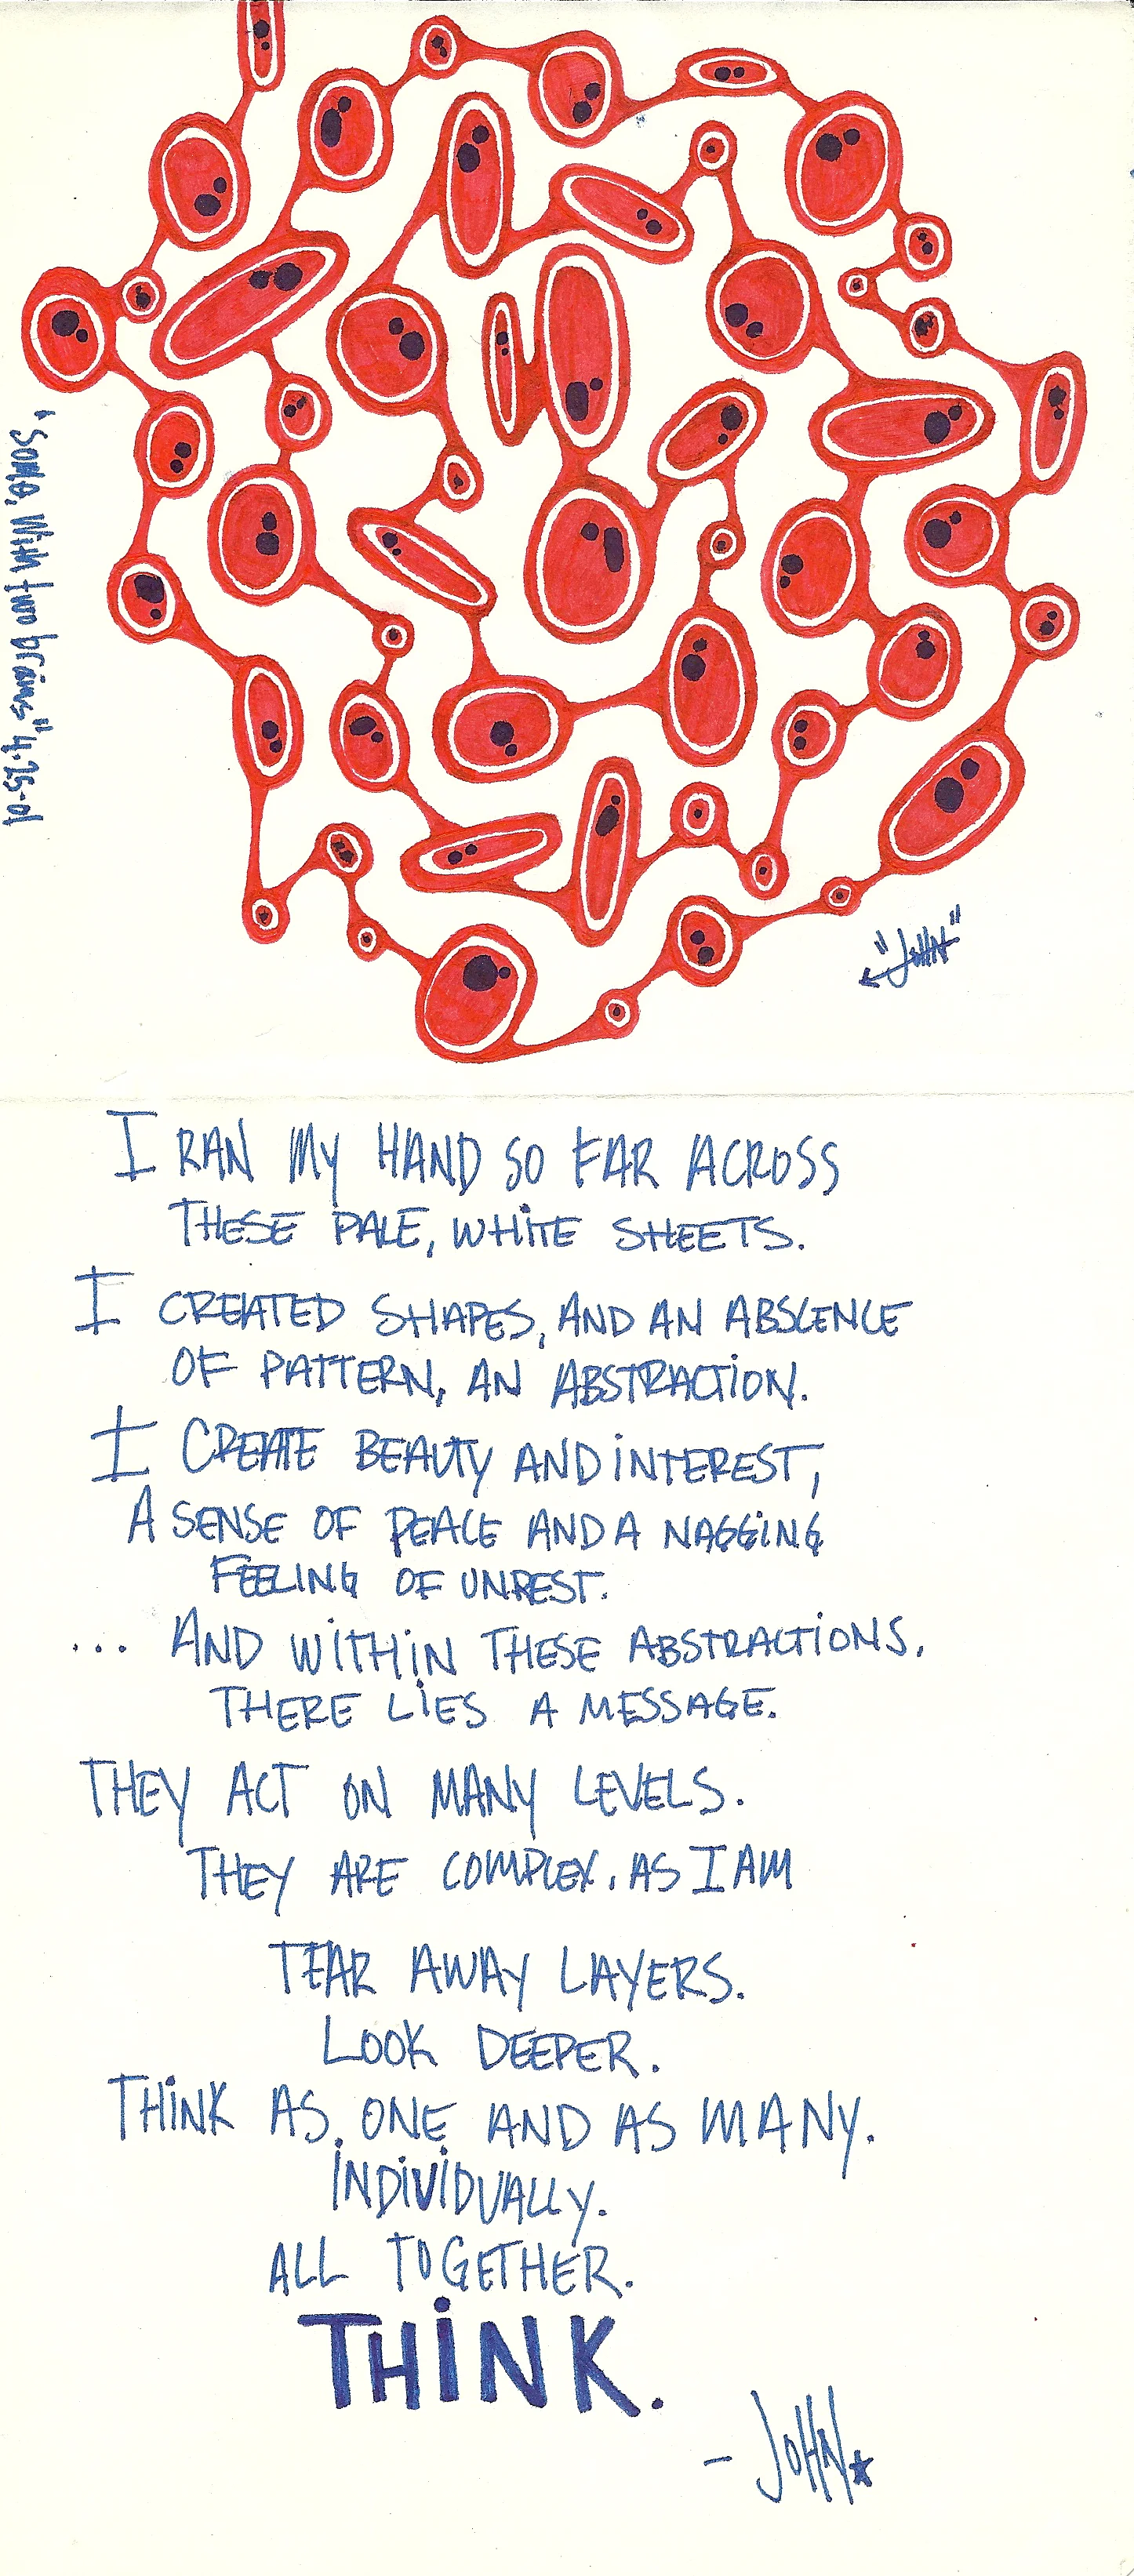 "SOME, WITH two brains" 4-25-01
"JOHN"
I RAN MY HAND SO FAR ACROSS
THESE PALE, WHITE SHEETS.
I CREATED SHAPES, AND AN ABSCENCE
OF PATTERN, AN ABSTRACTION.
I CREATE BEAUTY AND INTEREST,
A SENSE OF PEACE AND A NAGGING
FEELING OF UNREST.
... AND WITHIN THESE ABSTRACTIONS,
THERE LIES A MESSAGE.
THEY ACT ON MANY LEVELS.
THEY ARE COMPLEX, AS I AM
TEAR AWAY LAYERS.
LOOK DEEPER.
THINK AS ONE AND AS MANY.
INDIVIDUALLY.
ALL TOGETHER.
THINK.
- JOHN